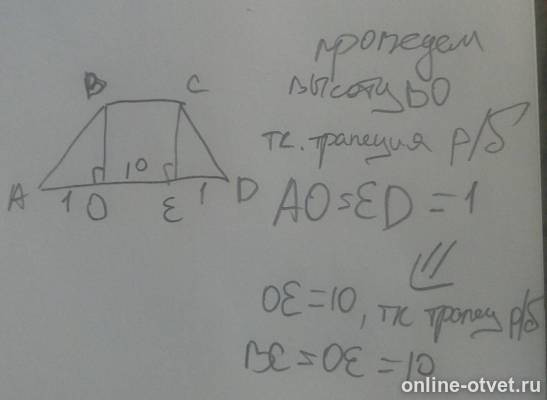 проведем
высоту BO
т.к. трапеция р/б
AO = ED = 1
OE = 10, тк трапец р/б
BC = OE = 10
B C
10
A 1 O E 1 D
online-otvet.ru